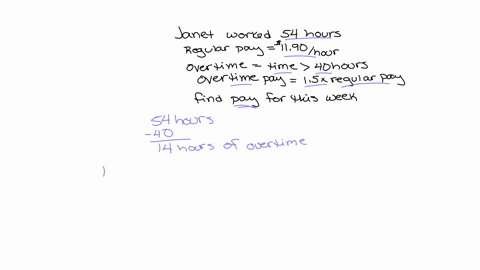 Janet worked 54 hours
Regular pay = $11.90/hour
overtime = time > 40 hours
overtime pay = 1.5x regular pay
find pay for this week
54 hours
-40
14 hours of overtime